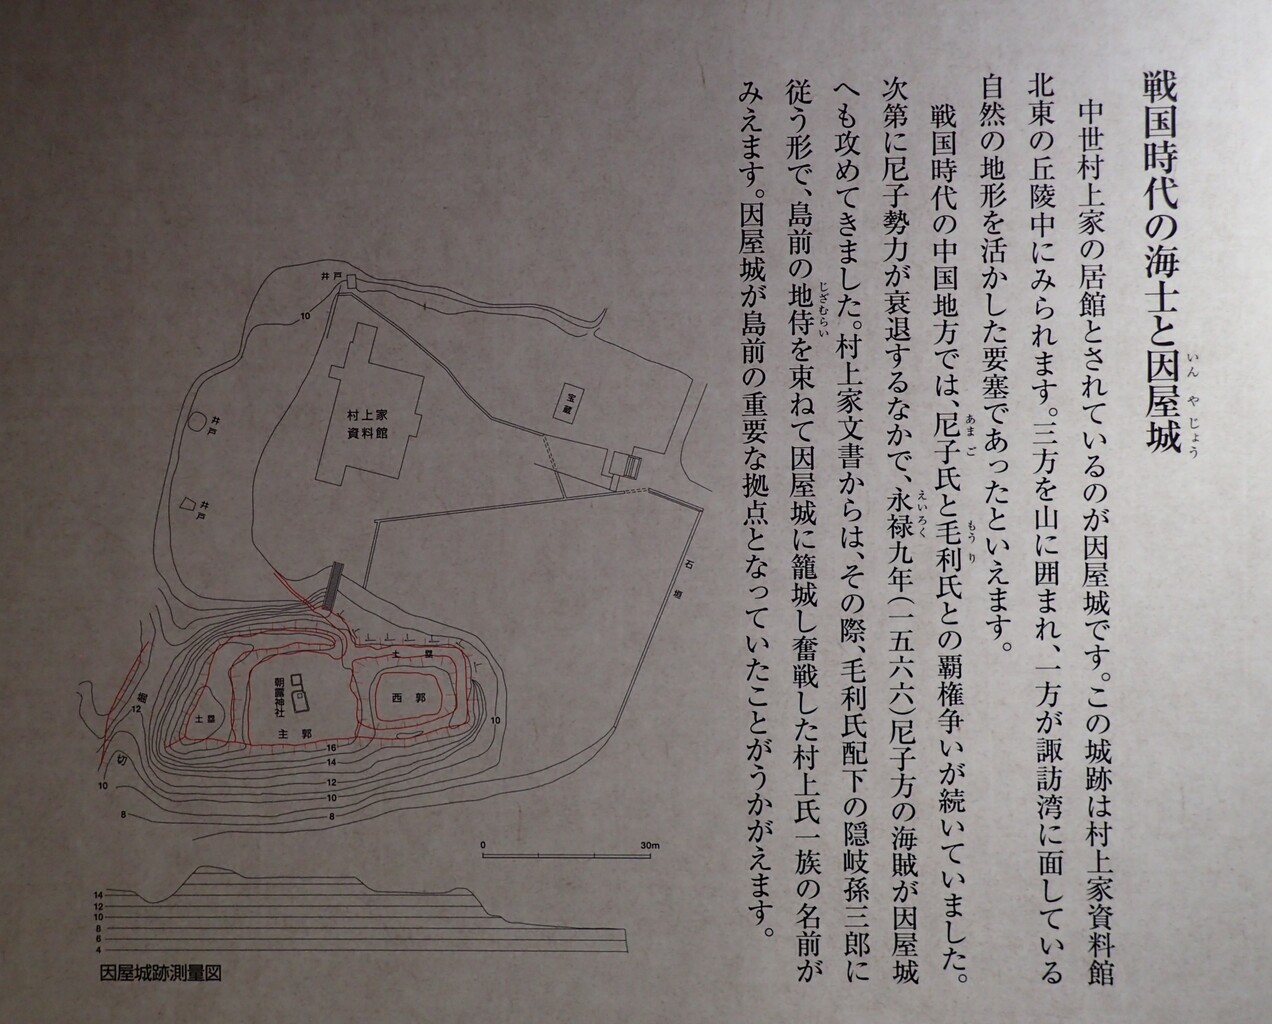 戦国時代の海士と因屋城
いんやじょう
中世村上家の居館とされているのが因屋城です。この城跡は村上家資料館
北東の丘陵中にみられます。三方を山に囲まれ、一方が諏訪湾に面している
自然の地形を活かした要塞であったといえます。
戦国時代の中国地方では、尼子氏と毛利氏との覇権争いが続いていました。
あまご
もうり
次第に尼子勢力が衰退するなかで、永禄九年(一五六六)尼子方の海賊が因屋城
えいろく
へも攻めてきました。村上家文書からは、その際、毛利氏配下の隠岐孫三郎に
従う形で、島前の地侍を束ねて因屋城に籠城し奮戦した村上氏一族の名前が
じざむらい
みえます。因屋城が島前の重要な拠点となっていたことがうかがえます。
井戸
10
宝蔵
村上家
資料館
井戸
井戸
石垣
土塁
西郭
朝露神社
土塁
主郭
堀切
12
10
16
14
12
10
8
10
8
0 30m
14
12
10
8
6
4
因屋城跡測量図